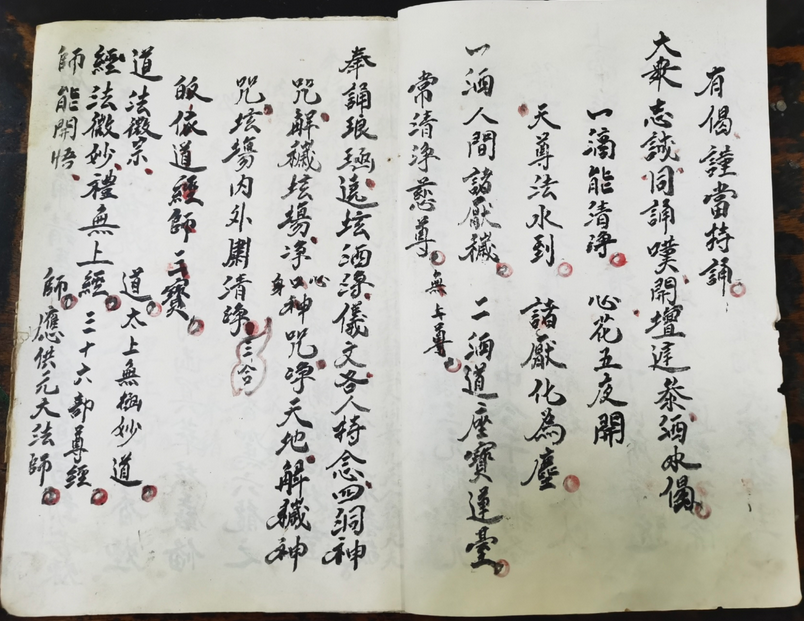 有偈謹當持誦
大眾志誠同誦嘆開壇建泰洒水偈
一滴能清淨　心花五夜開
天尊法水到　諸厭化為塵
一洒人間諸厭穢　二洒道座寶蓮臺
常清淨慈尊　無上尊
奉誦琅函遶坛洒淨儀文各人持念四洞神
咒解穢坛場淨心口身神咒淨天地解穢神
咒坛場內外肅清淨三合
皈依道經師三寶
道法微宗　道太上無極妙道
經法微妙禮無上經　三十六部尊經
師能開悟　師應供元大法師